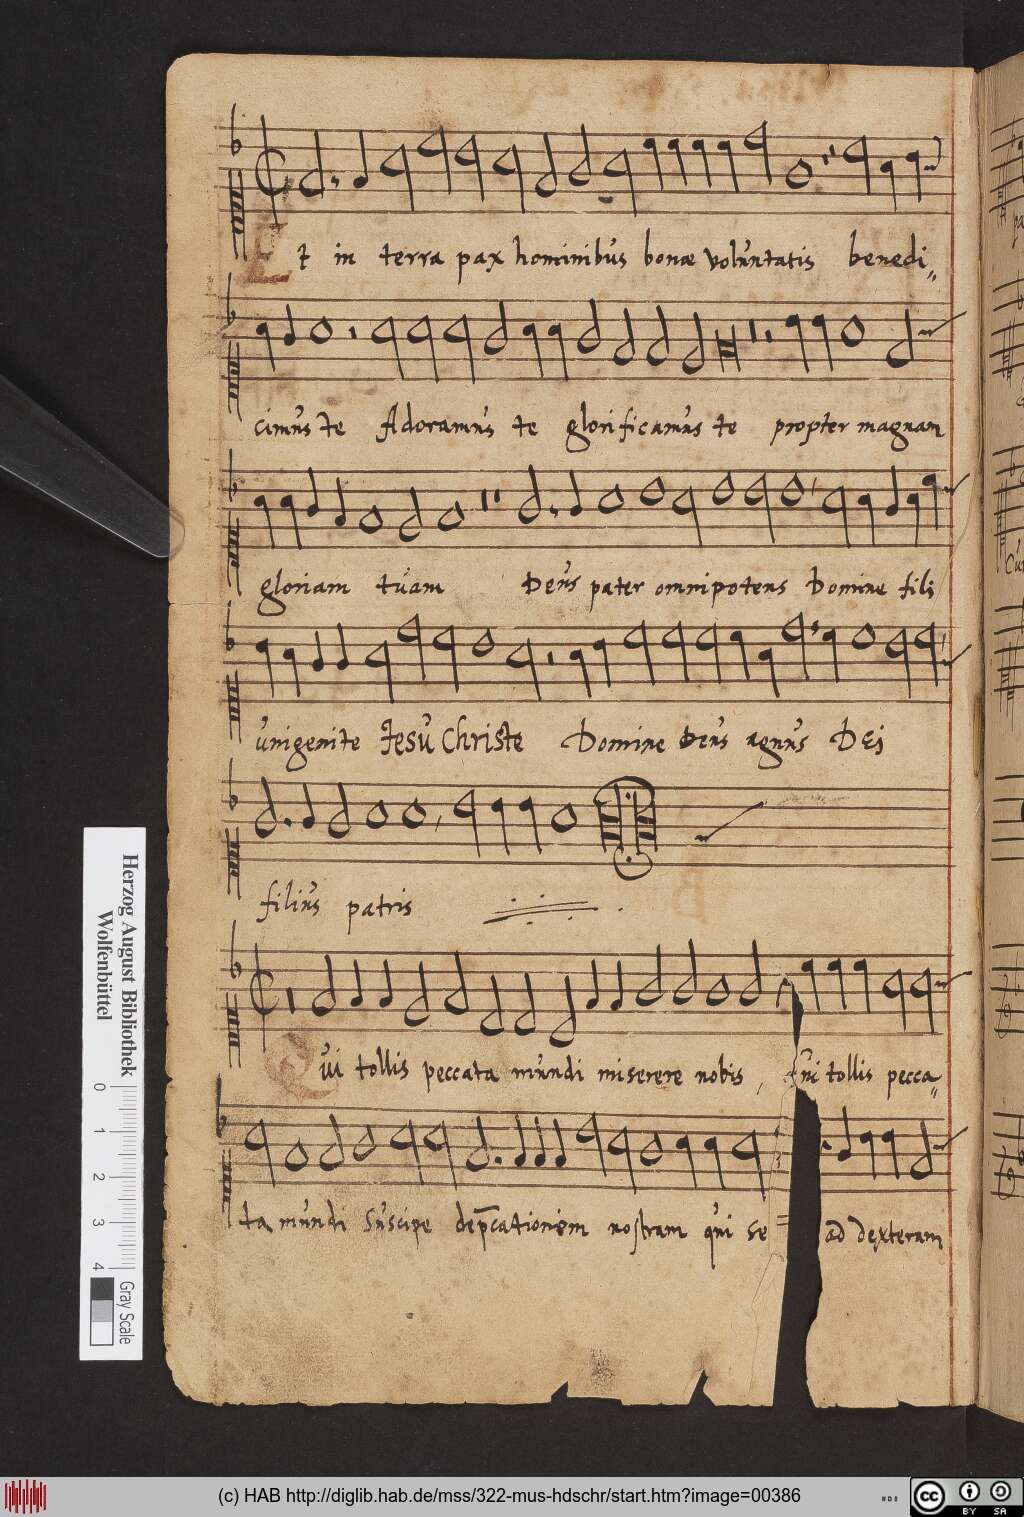 Et in terra pax hominibus bonæ voluntatis benedi„
cimus te Adoramus te glorificamus te propter magnam
gloriam tuam Deus pater omnipotens Domine fili
unigenite Jesu Christe Domine Deus agnus Dei
filius patris
Qui tollis peccata mundi miserere nobis, Qui tollis pecca„
ta mundi Suscipe dep̄cationem nostram qui se= ad dexteram
Herzog August Bibliothek
Wolfenbüttel
0 1 2 3 4
Gray Scale
(c) HAB http://diglib.hab.de/mss/322-mus-hdschr/start.htm?image=00386
cc BY SA